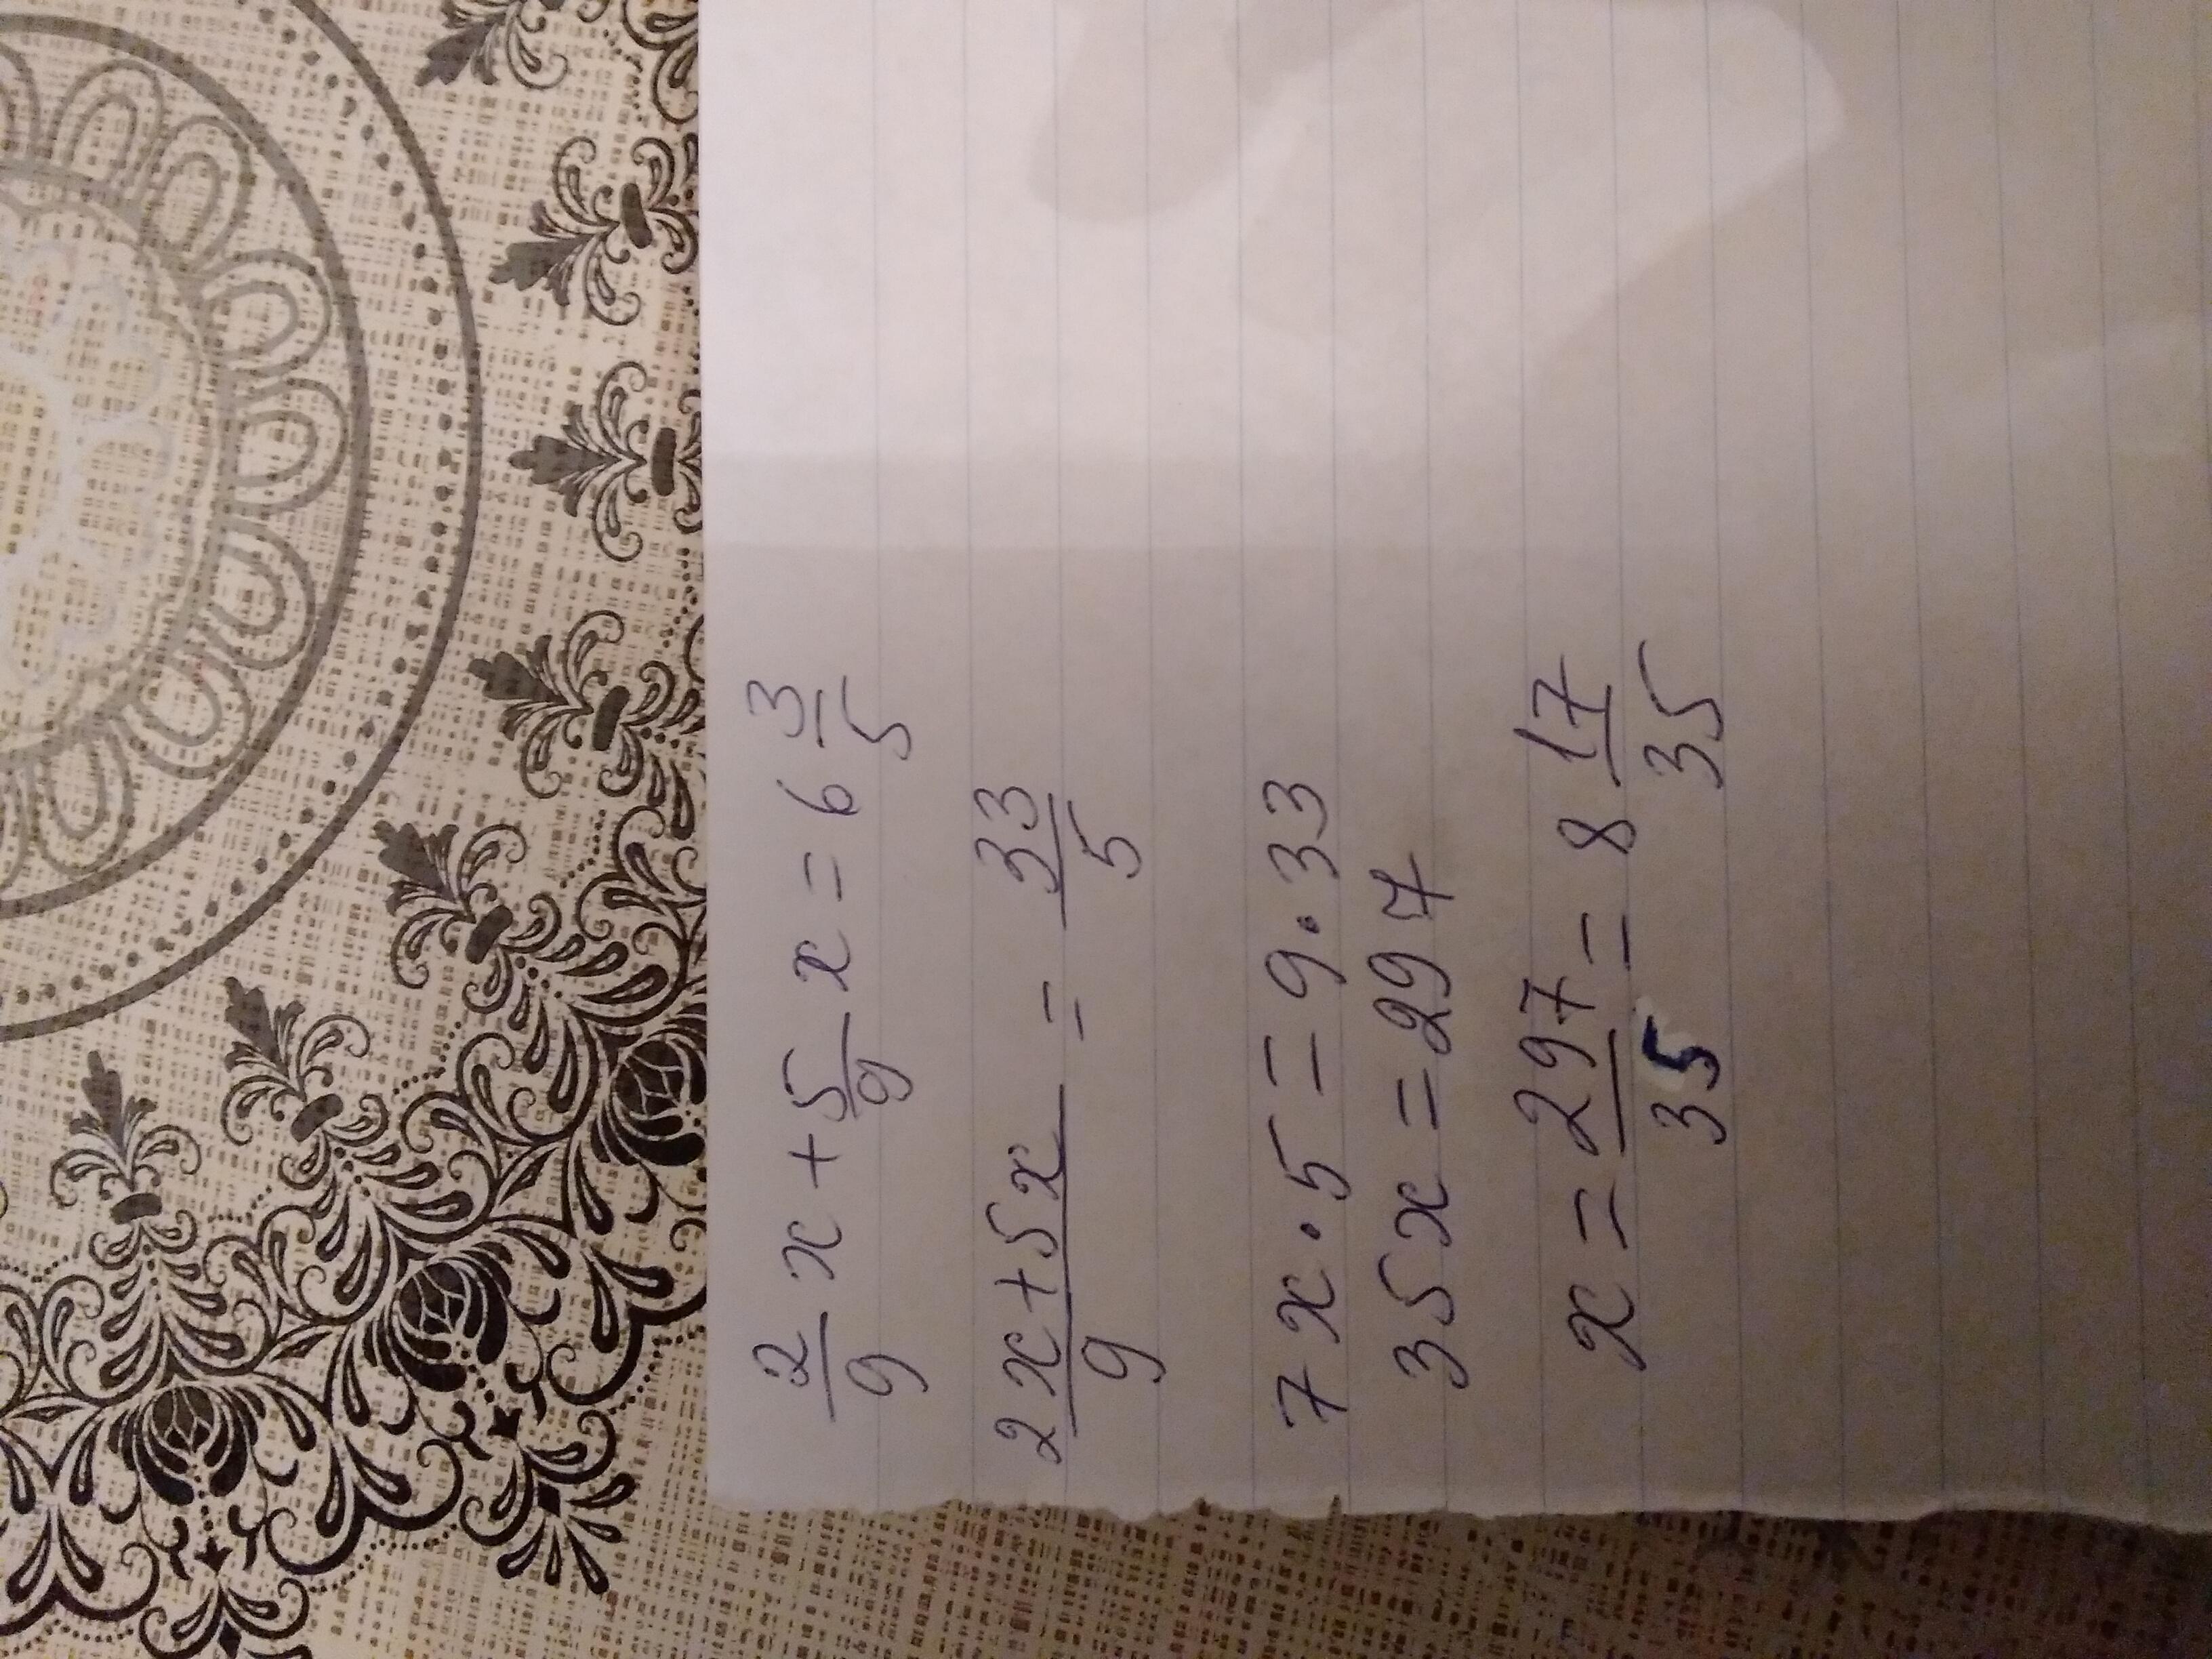 2/9 x + 5/9 x = 6 3/5
2x+5x/9 = 33/5
7x·5=9·33
35x=297
x=297/35=8 17/35